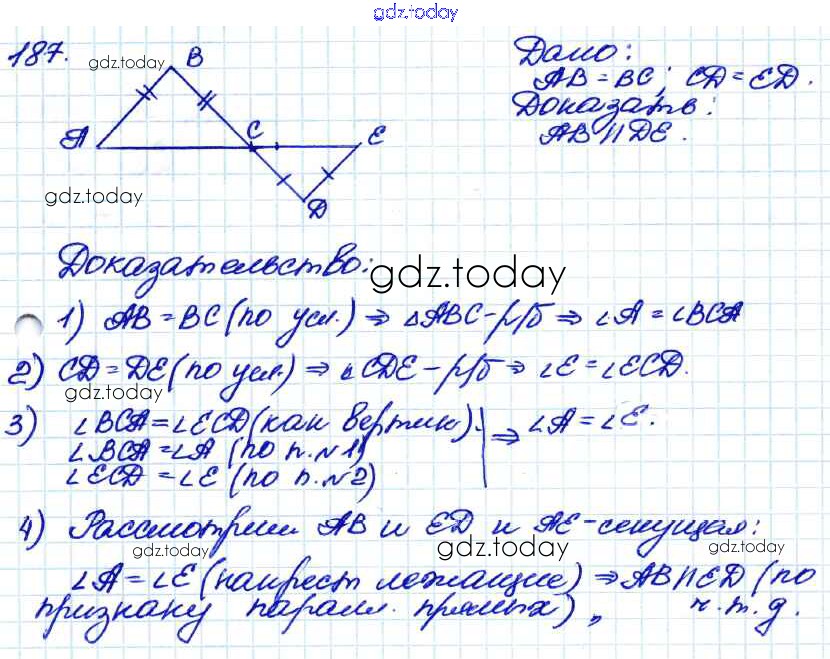 gdz.today
187.
gdz.today
B
A
C
E
D
Дано:
AB = BC; CD = ED.
Доказать:
AB || DE.
gdz.today
Доказательство:
gdz.today
1) AB = BC (по усл.) ⇒ △ABC - р/б ⇒ ∠A = ∠BCA
2) CD = DE (по усл.) ⇒ △CDE - р/б ⇒ ∠E = ∠ECD.
gdz.today
3) ∠BCA = ∠ECD (как вертик.)
∠BCA = ∠A (по п. №1)
∠ECD = ∠E (по п. №2)
⇒ ∠A = ∠E.
4) Рассмотрим AB и ED и AE - секущая:
gdz.today
gdz.today
gdz.today
∠A = ∠E (накрест лежащие) ⇒ AB || ED (по
признаку паралл. прямых), ч.т.д.